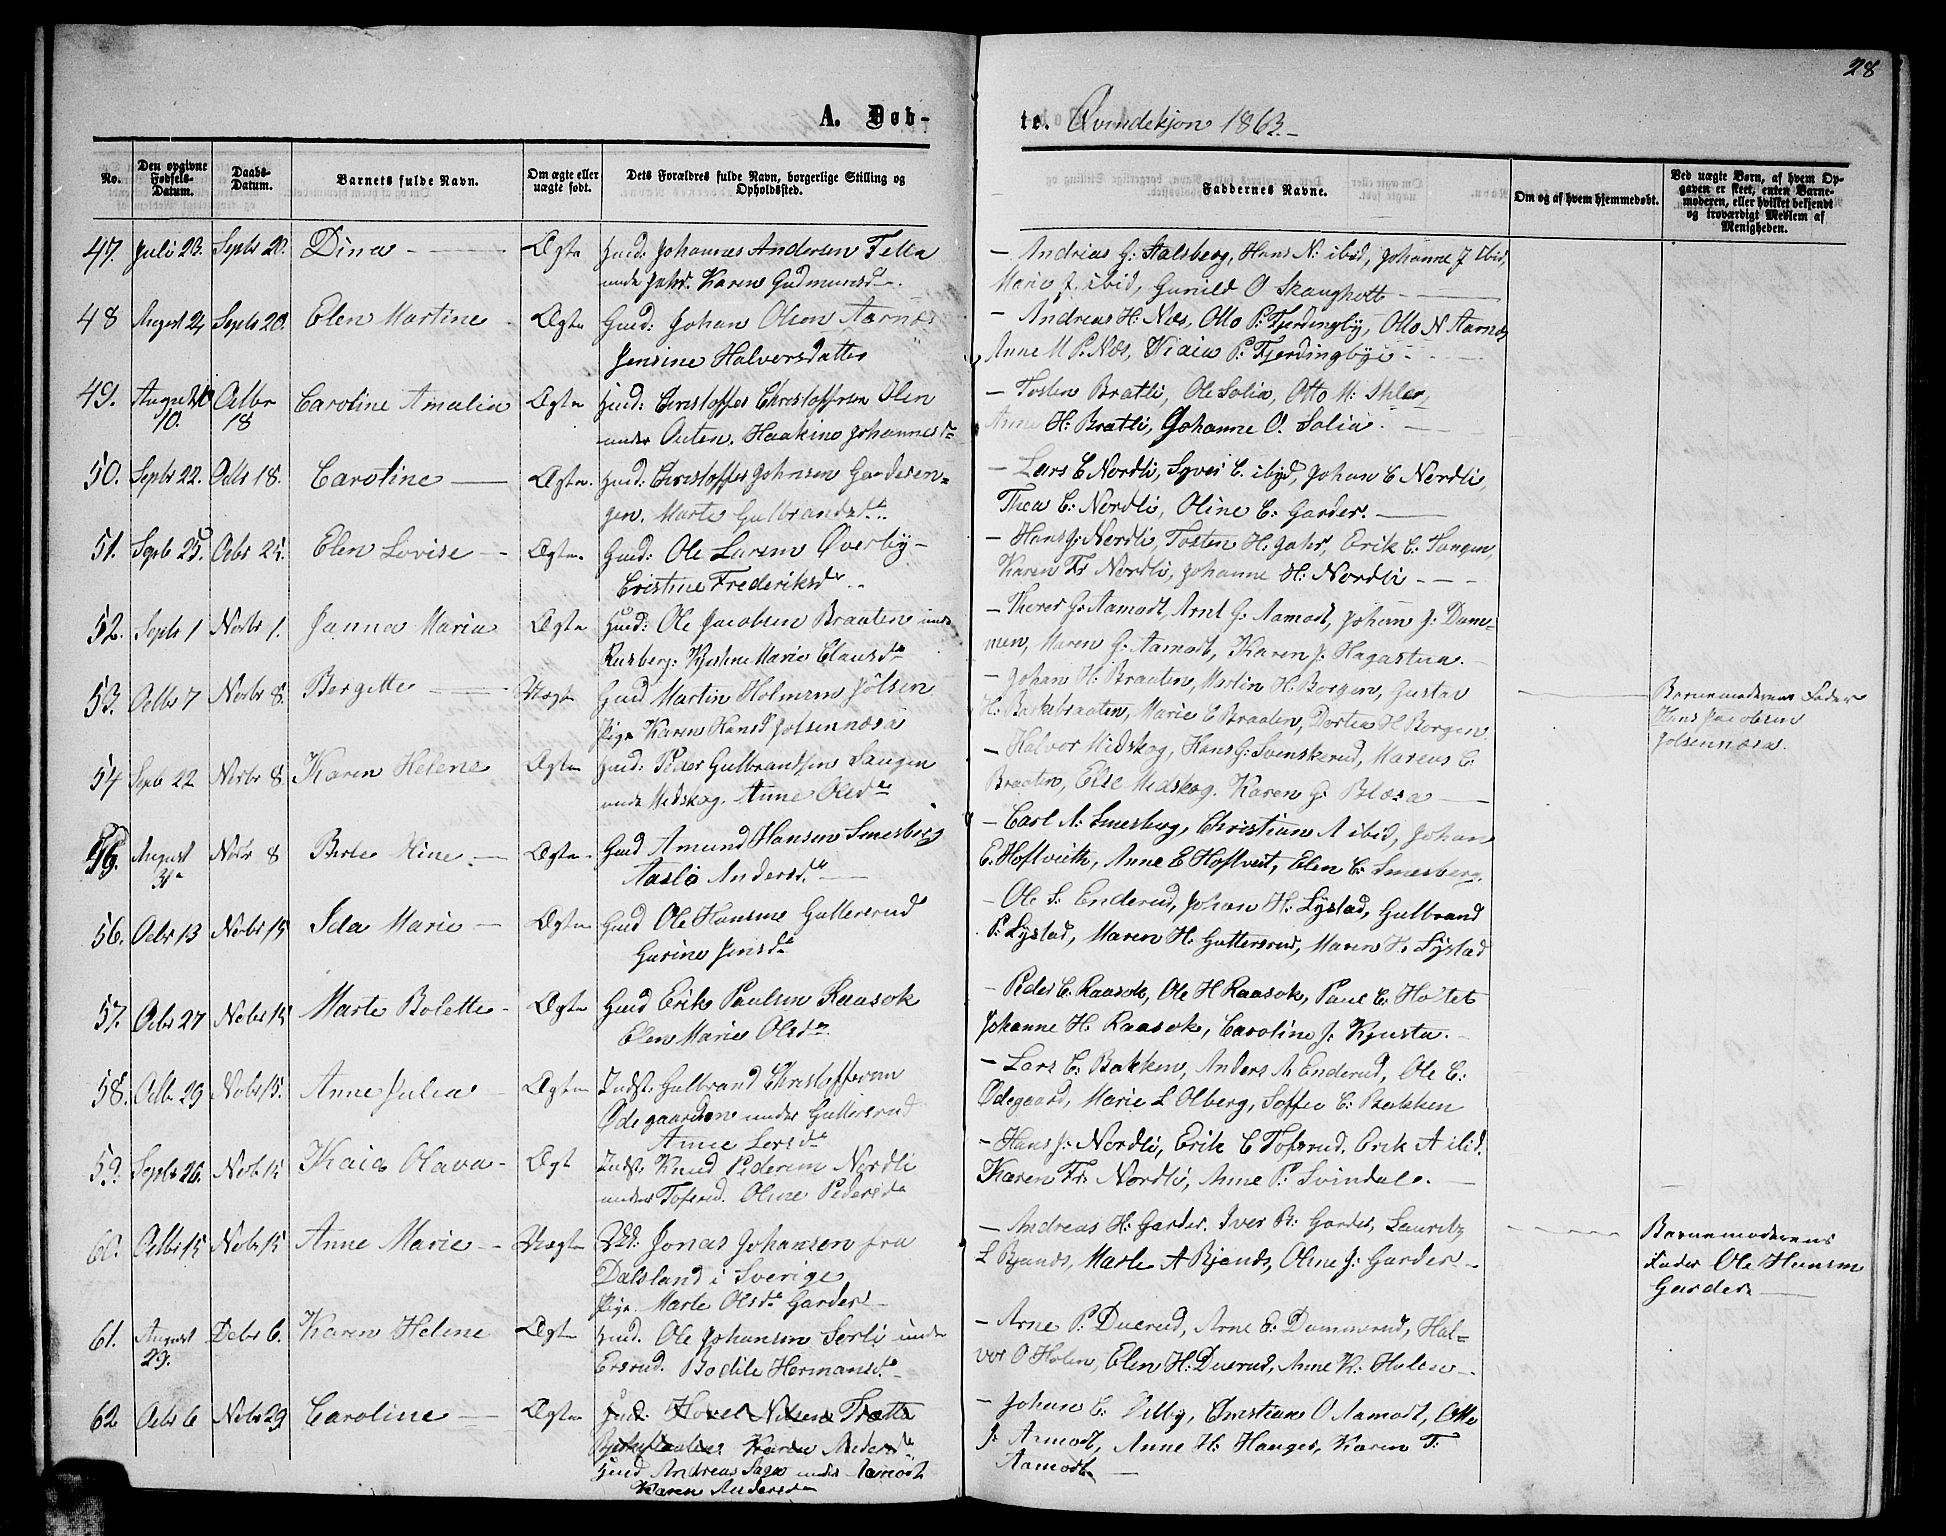 28
A. Døb-
te. Qvindekjøn 1863.
No.
Den opgivne Fødsels-Datum.
Daabs-Datum.
Barnets fulde Navn.
Om ægte eller uægte født.
Dets Forældres fulde Navn, borgerlige Stilling og Opholdssted.
Faddernes Navne.
Om og af hvem hjemmedøbt.
Ved uægte Børn, af hvem Op-
gaven er skeet, enten Barne-
moderen, eller hvilket bekjendt
og troværdigt Medlem af
Menigheden.
47. Juli 23. Septr 20. Dina Ægte Huusd: Johannes Andersen Fella
under Jahr. Karen Gudmunsd.
- Andreas G: Aalsberg, Hans N: ibid, Johanne J ibid,
Marie J. ibid, Gunild O Skaugholt
48 August 2, Septr 20. Elen Martine Ægte Huusd: Johan Olsen Aarnæs
Jensine Halversdatter
- Andreas H: Næs, Otto P: Fjerdingby, Otto N Aarnæs
Anne M P. Næs, Kiaia P: Fjerdingbye
49. August 10. Octbr 18 Caroline Amalia Ægte Huusd: Christoffer Christoffersen Olen
under Outen. Haakine Johannesdr
- Tosten Bratli, Ole Solia, Otto M: Ihler,
Anne H: Bratli, Johanne O. Solia.
50. Septr 22. Octr 18. Caroline Ægte. Huusd: Christoffer Johnsen Garderen-
gen. Marte Gulbrandsdr.
- Lars C Nordli, Syver C. ibid, Johan C Nordli,
Thea C: Nordli, Oline C: Garder.
51. Septr 25. Octr 25. Elen Lovise Ægte. Huusd: Ole Larsen Øverby
Cristine Frederiksdr
- Hans J: Nordli, Tosten H: Jahr, Erik C: Tangen,
Karen Fr Nordli, Johanne H: Nordli
52. Septr 1 Novbr 1. Janna Maria Ægte Huusd: Ole Jacobsen Braaten under
Rusberg: Kjerstine Marie Clausdr
- Thorer G: Aamodt, Arnt G: Aamodt, Johan J: Dam-
men, Maren G: Aamodt, Karen J: Hagastua.
53. Octbr 7 Novbr 8. Bergitte Uægt Huusd Martin Holmsen Jølsen
Pige Karen Hansd Jolsennæsa
- Johan H: Braaten, Martin H: Borgen, Gustav
H: Bakabraaten, Marie C Braaten, Dortea H Borgen
Barnemoderens Fader
Hans Jacobsen
Jolsennæsa.
54 Septr 22 Novbr 8. Karen Helene Ægte Huusd: Peder Gulbrandsen Saugen
under Midskog. Anne Olsdr
- Halvor Midskog, Hans G: Svenskerud, Marcus C.
Braaten, Else Midskog. Karen G: Blæsa
55. August 31te Novbr 8 Berte Mine. Ægte. Huusd Amund Hansen Smesberg
Aaslo Andersdr
- Carl N: Smesberg, Christian A ibid, Johan
E. Hoftvedt, Anne E Hoftvet, Elen C: Smesberg.
56. Octbr 13 Novbr 15 Ida Marie Ægte Huusd Ole Hansen Guttersrud
Gurine Jensdr
- Ole S. Enderud, Johan H: Lystad, Gulbrand
P: Lystad, Maren H: Guttersrud, Maren H: Lystad
57. Octbr 27 Nobr 15 Marte Bolette Ægte Huusd Erik Paulsen Raasok
Elen Marie Olsdr.
- Peder C. Raasok, Ole H Raasok, Paul C. Hotet
Johanne H. Raasok, Caroline J: Kjusta.
58. Octbr 29 Nobr 15. Anne Julia Ægte Indst. Gulbrand Christoffersen
Ødegaarden under Guttersrud
Anne Larsdr
- Lars C. Bakken, Anders A Enderud, Ole C:
Ødegaard, Marie L Olberg, Soffie C: Bakken
59. Septr 26. Nobr 15 Kaia Olava Ægt Indst. Knud Pedersen Nordli
under Tofsrud. Oline Pedersdr
- Hans J: Nordli, Erik C Tofsrud, Erik A ibid.
Karen Fr: Nordli, Anne P. Svindal.
60. Octbr 15 Nobr 15 Anne Marie Uægte Jonas Johansen fra
Dalsland i Sverige
Pige. Marte Olsdr Garder
- Andreas H: Garder. Iver B: Garder, Lauritz
L Bjands, Marte A Bjands, Oline J: Garder
Barnemoderens
Fader Ole Hansen
Garder
61. August 29. Debr 6. Karen Helene Ægte Huusd. Ole Johansen Sorli under
Ersrud. Bodile Hermansdr
- Arne P: Duerud, Arne E: Dammerud, Hal-
vor O Holen, Elen H: Duerud, Anne K: Holen
62 Octbr 6 Nobr 29 Caroline Ægte Huusd: Hovel Nilsen Tratte
Karen Andersdr
Huusd Andreas Saga under Aamodt
Karen Andersdr
- Johan C. Dilby, Christian O Aamodt, Otto
J. Aamodt, Anne H: Hanger, Karen T:
Aamodt